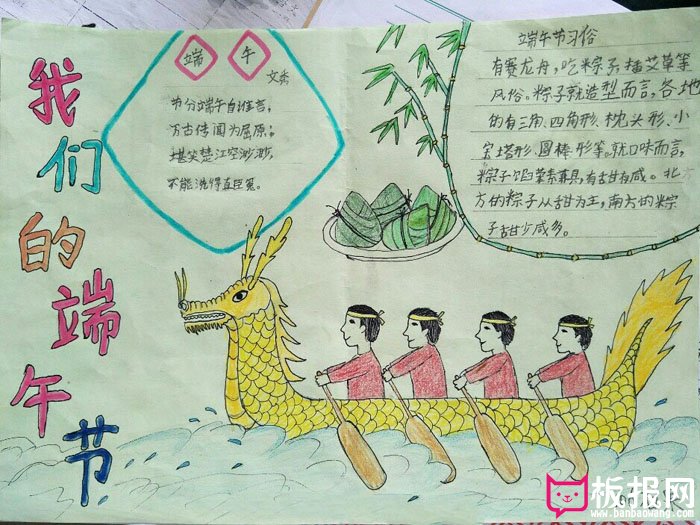 我们的端午节
端 午
文秀
节分端午自谁言,
万古传闻为屈原;
堪笑楚江空渺渺,
不能洗得直臣冤。
端午节习俗
有赛龙舟,吃粽子,插艾草等
风俗。粽子就造型而言,各地
的有三角、四角形、枕头形、小
宝塔形、圆棒形等。就口味而言,
粽子馅荤素具,有甜有咸。北
方的粽子从甜为主,南方的粽
子甜少咸多。
板报网
www.banbaowang.com